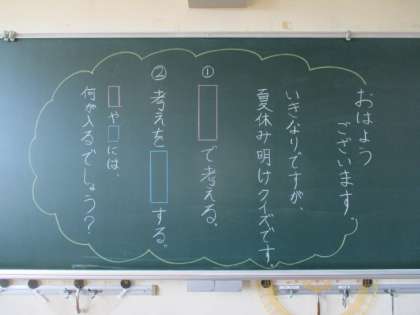 おはよう
ございます。
いきなりですが、
夏休み明けクイズです。
① □で考える。
② 考えを□する。
□や□には、
何が入るでしょう？